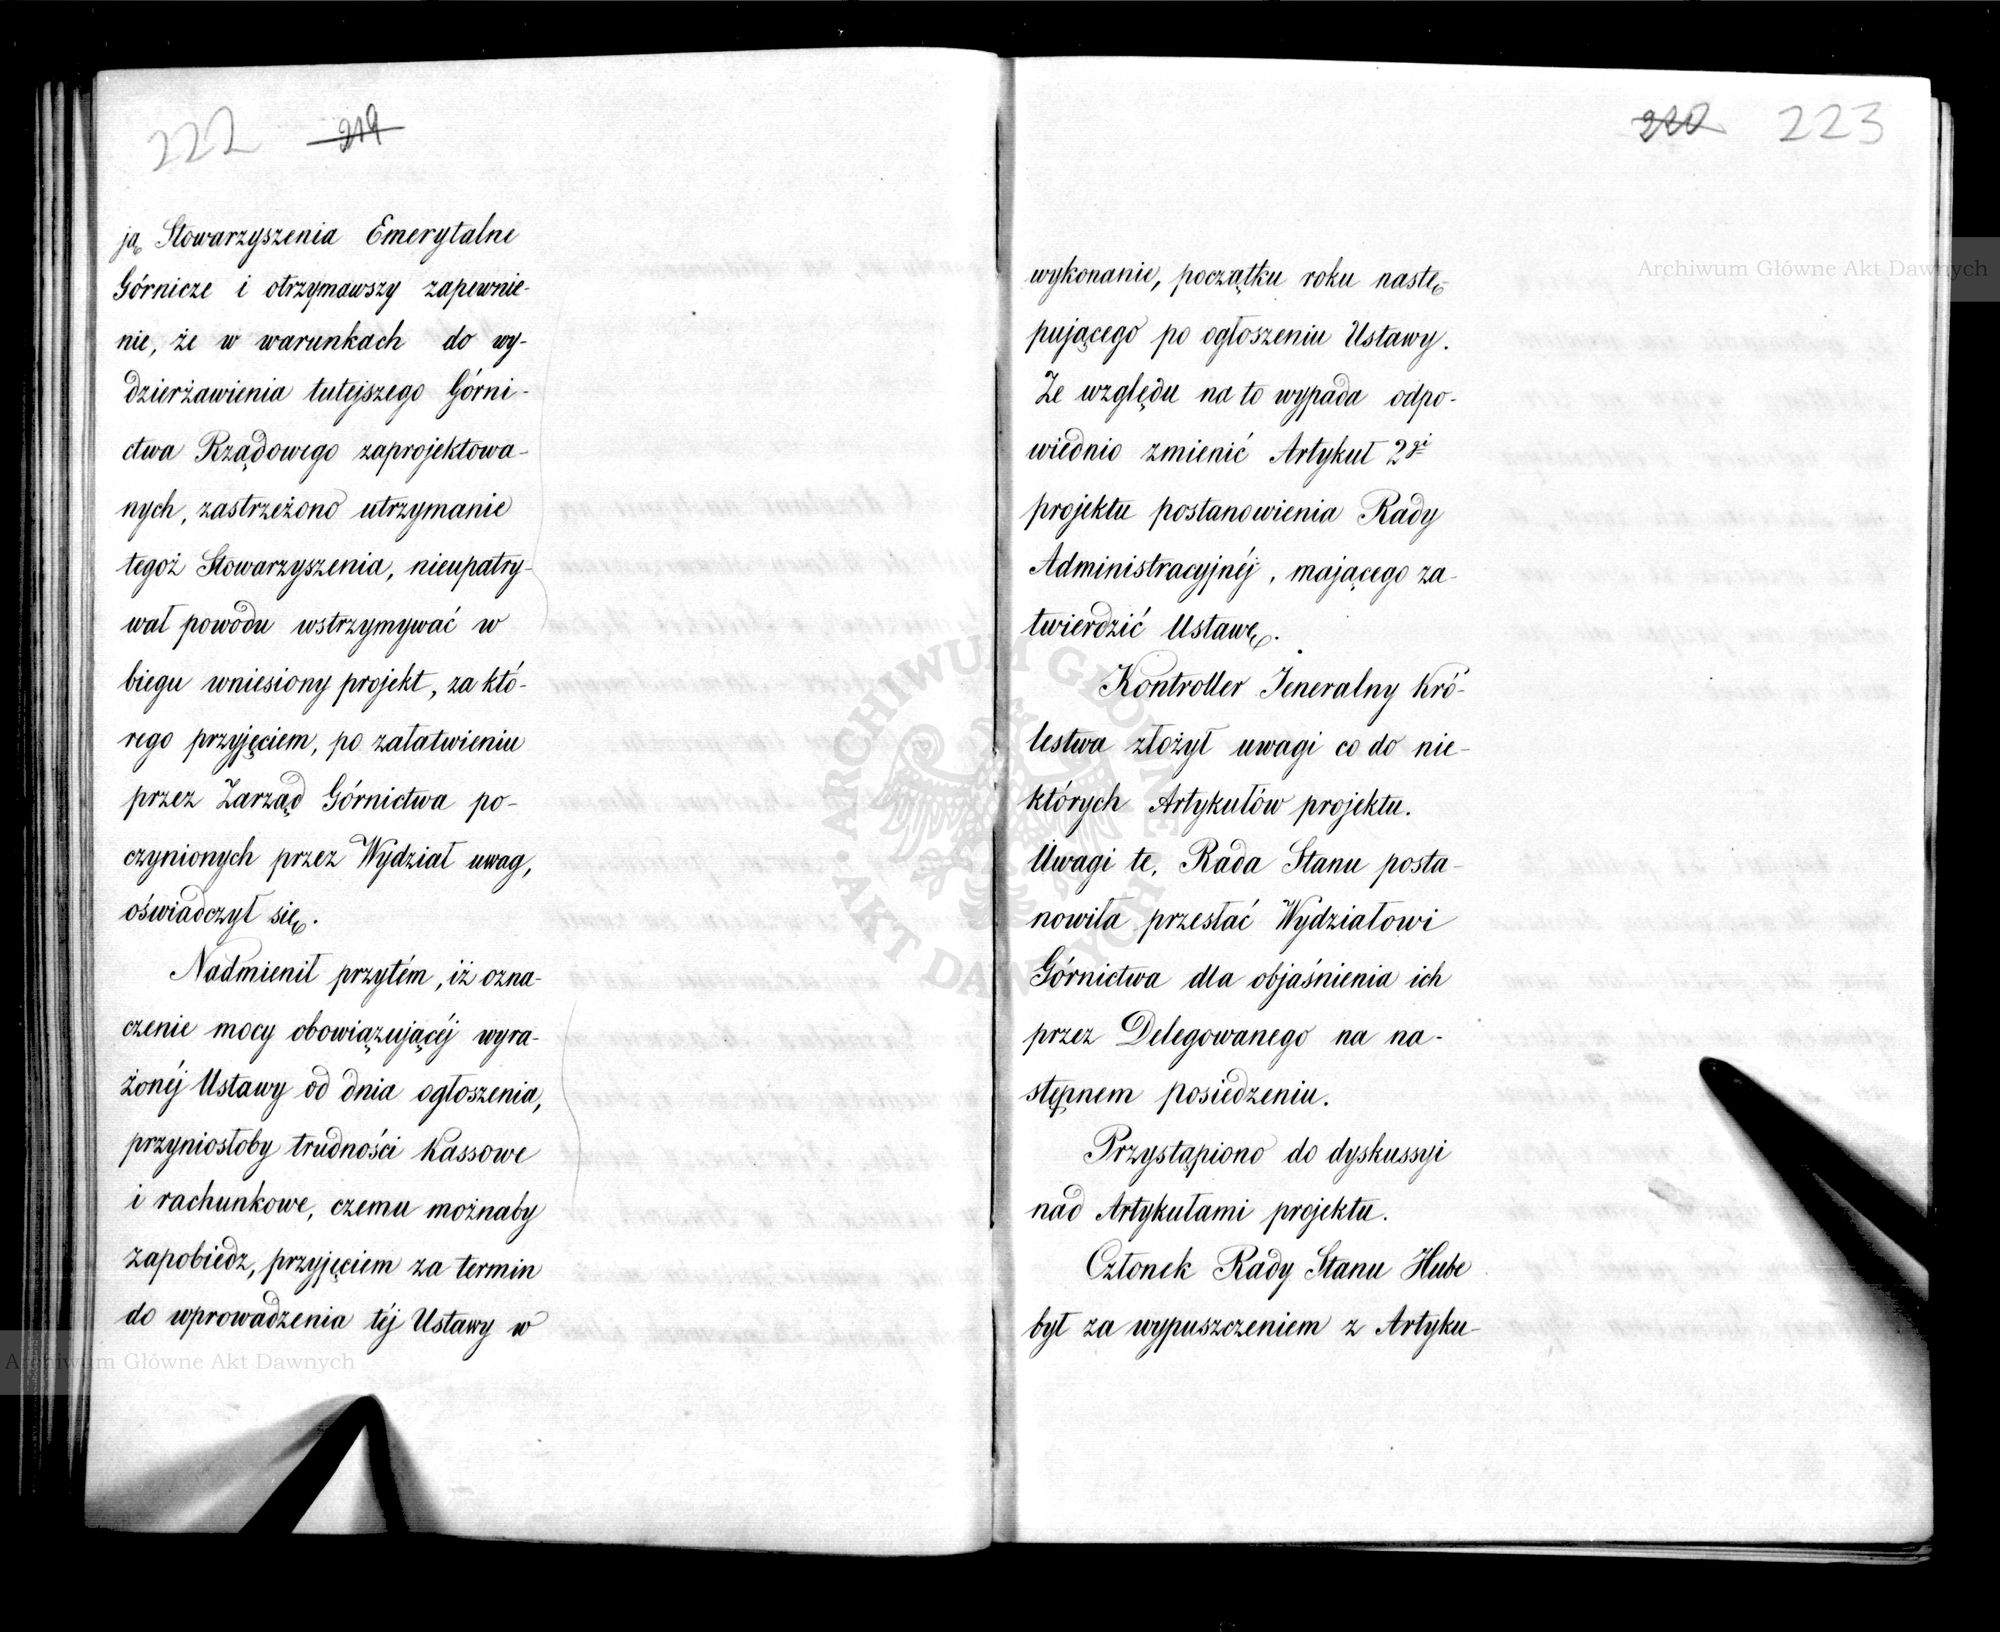 222 219
ją Stowarzyszenia Emerytalne
Górnicze i otrzymawszy zapewnie-
nie, że w warunkach do wy-
dzierżawienia tutejszego Górni-
ctwa Rządowego zaprojektowa-
nych, zastrzeżono utrzymanie
tegoż Stowarzyszenia, nieupatry-
wał powodu wstrzymywać w
biegu wniesiony projekt, za któ-
rego przyjęciem, po załatwieniu
przez Zarząd Górnictwa po-
czynionych przez Wydział uwag,
oświadczył się.
Nadmienił przytém, iż ozna-
czenie mocy obowiązującéj wyra-
żonéj Ustawy od dnia ogłoszenia,
przyniosłoby trudności Kassowe
i rachunkowe, czemu możnaby
zapobiedz, przyjęciem za termin
do wprowadzenia téj Ustawy w
Archiwum Główne Akt Dawnych
220 223
Archiwum Główne Akt Dawnych
wykonanie, początku roku nastę-
pującego po ogłoszeniu Ustawy.
Ze względu na to wypada odpo-
wiednio zmienić Artykuł 2gi
projektu postanowienia Rady
Administracyjnéj, mającego za-
twierdzić Ustawę.
Kontroller Jeneralny Kró-
lestwa złożył uwagi co do nie-
których Artykułów projektu.
Uwagi te, Rada Stanu posta-
nowiła przesłać Wydziałowi
Górnictwa dla objaśnienia ich
przez Delegowanego na na-
stępnem posiedzeniu.
Przystąpiono do dyskussyi
nad Artykułami projektu.
Członek Rady Stanu Hube
był za wypuszczeniem z Artyku-
ARCHIWUM GŁÓWNE AKT DAWNYCH